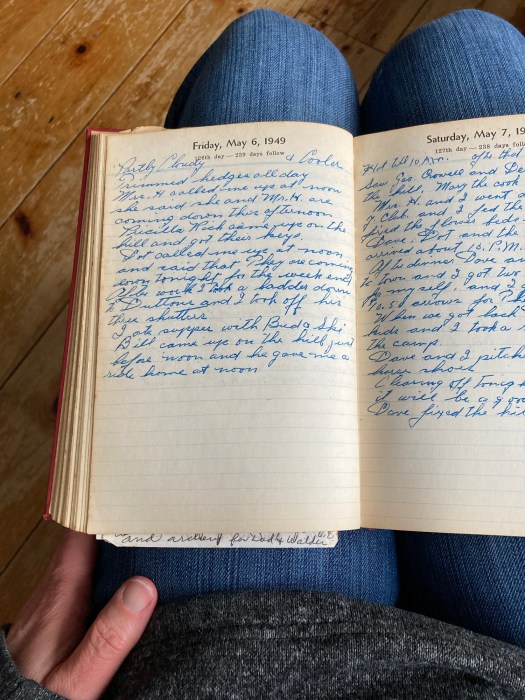 Friday, May 6, 1949
126th day — 239 days follow
Partly Cloudy & Cooler
Trimmed hedges all day
Mrs. H called me up at noon
she said she and Mr. H. are
coming down this afternoon.
Priscilla Rich came up on the
hill and got their keys.
Dot called me up at noon
and said that They are coming
even tonight for the week end
After work I took a ladder down
to Duttons and I took off his
three shutters
I ate supper with Bud & Ski
Bill came up on the hill just
before noon and he gave me a
ride home at noon
Saturday, May 7, 19
127th day — 238 days follow
till 10 A.m. after that
Saw Geo. and
the hill, Mary the cook
Mr. H. and I went
Club. and I fed the
the flower beds.
Dave, Dot and the
arrived about 12. P.M.
After dinner Dave an
to town and I got two
for myself. and I g
arrows for
When we got back
kids and I took a
the camp.
Dave and I pitch
horse shoes
Clearing off tonig
it will be a goo
Dave fixed the
and archery for Dad & Walder